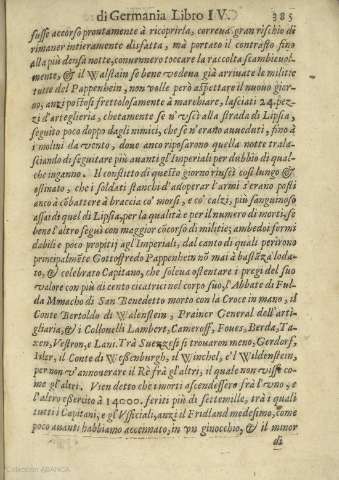 di Germania Libro IV. 385
fusse accorso prontamente à ricoprirla, correua gran rischio di
rimaner intieramente disfatta, mà portato il contrasto fino
alla più densa notte, conuennero toccare la raccolta scambieuol-
mente, & il Walstain se bene vedeua già arriuate le militie
tutte del Pappenhein, non volle però aspettare il nuouo gior-
no, anzi postosi frettolosamente à marchiare, lasciati 24. pez-
zi d'arteglieria, chetamente se n'vscì alla strada di Lipsia,
seguito poco doppo dagli nimici, che se n'erano aueduti, fino à
i molini da vento, doue anco riposarono quella notte trala-
sciando di seguitare più auanti gl'Imperiali per dubbio di qual-
che inganno. Il conflitto di questo giorno riuscì così lungo &
ostinato, che i soldati stanchi d'adoperar l'armi s'erano posti
anco à cõbattere à braccia co' morsi, e co' calzi, più sanguinoso
assai di quel di Lipsia, per la qualità e per il numero di morti, se
bene l'altro seguì con maggior cõcorso di militie; ambedoi formi
dabili e poco propitij agl'Imperiali, dal canto di quali perirono
principalmẽte Gottoffredo Pappenhein nõ mai à bastãza loda-
to, & celebrato Capitano, che soleua ostentare i pregi del suo
valore con più di cento cicatrici nel corpo suo, l'Abbate di Ful-
da Monacho di San Benedetto morto con la Croce in mano, il
Conte Bertoldo di Walenstein, Prainer General dell'arti-
gliaria, & i Collonelli Lambert, Cameroff, Foues, Berda, Ta-
xen, Vestron, e Lani. Trà Suezzesi si trouaron meno, Gerdorf,
Isler, il Conte di Wessenburgh, il Winchel, e'l Wildenstein,
per non v'annouerare il Rè frà gl'altri, il quale non visse co-
me gl'altri. Vien detto che i morti ascendessero frà l'vno, e
l'altro essercito à 14000. feriti più di settemille, trà i quali
tutti i Capitani, e gl'Vfficiali, anzi il Fridland medesimo, come
poco auanti habbiamo accennato, in vn ginocchio, & il minor
di
Colección ABANCA